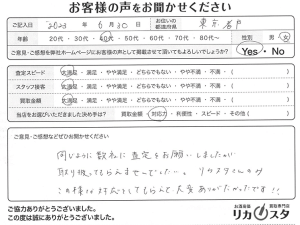 お客様の声をお聞かせください
ご記入日 2023年6月30日 お住いの都道府県 東京都
年齢 20代・30代・40代・50代・60代・70代・80代～ 性別 男・女
ご意見・ご感想を弊社ホームページにお客様の声として掲載させて頂いてもよろしいでしょうか? Yes・No
査定スピード 大満足・満足・やや満足・どちらでもない・やや不満・不満・（ ）
スタッフ接客 大満足・満足・やや満足・どちらでもない・やや不満・不満・（ ）
買取金額 大満足・満足・やや満足・どちらでもない・やや不満・不満・（ ）
当店をお選びいただきました決め手は? 買取金額・対応力・利便性・スピード・その他（ ）
ご意見・ご感想などぜひお聞かせください
同じように数社に査定をお願いしましたが
取り扱ってもらえませんでした…。リカスタさんのみ
対応してもらえて大変ありがたかったです!!
ご協力ありがとうございました。
この度は誠にありがとうございました。
お酒査値 買取専門店
リカスタ